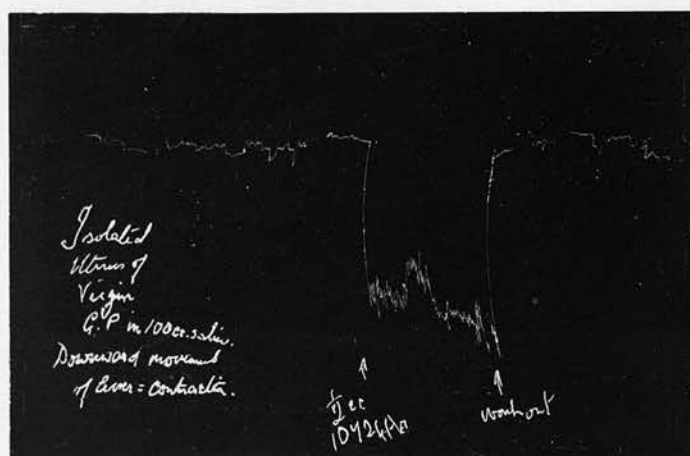 Isolated
Uterus of
Virgin
G.P in 100cc. saline.
Downward movement
of lever = contraction.
½ cc
washout